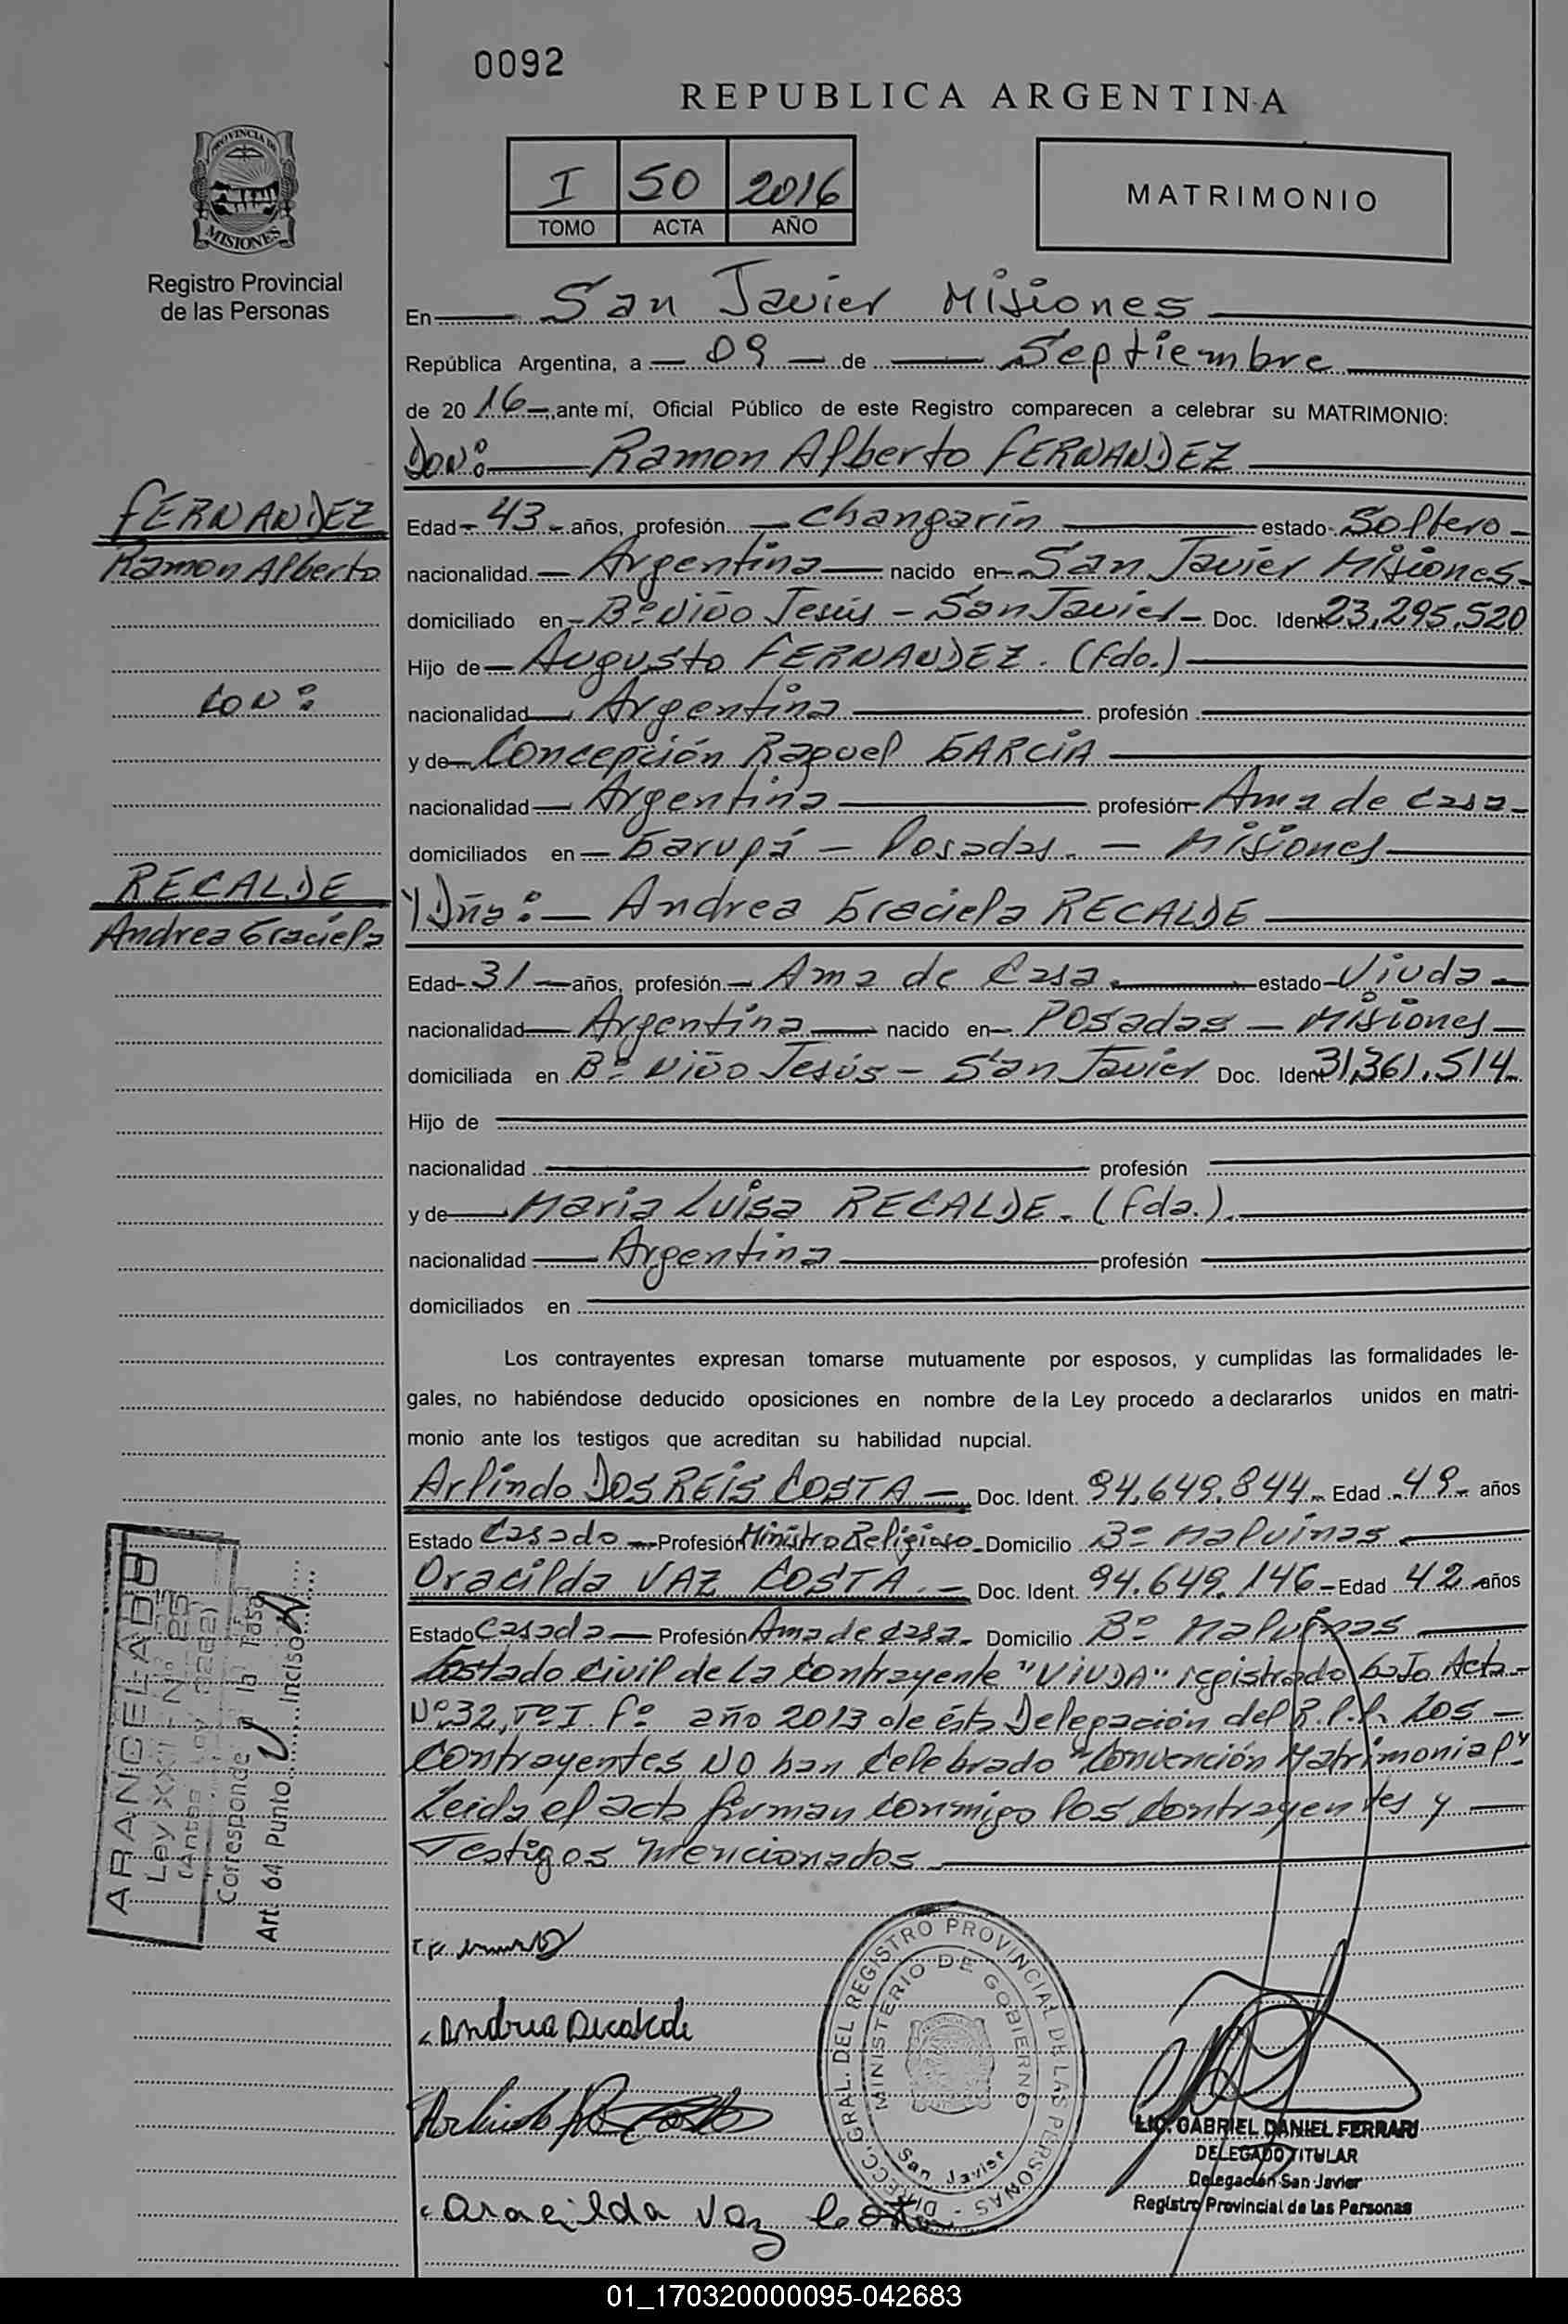 0092
REPUBLICA ARGENTINA
I 50 2016
TOMO ACTA AÑO
MATRIMONIO
PROVINCIA DE
MISIONES
Registro Provincial
de las Personas
En San Javier Misiones
República Argentina, a 09 de Septiembre
de 20 16 ante mí, Oficial Público de este Registro comparecen a celebrar su MATRIMONIO:
Don: Ramon Alberto FERNANDEZ
FERNANDEZ
Ramon Alberto
Edad 43 años, profesión changarín estado Soltero
nacionalidad Argentina nacido en San Javier Misiones
domiciliado en Bº Niño Jesús - San Javier Doc. Ident 23.295.520
Hijo de Augusto FERNANDEZ. (fdo.)
CON:
nacionalidad Argentina profesión
y de Concepción Raquel GARCIA
nacionalidad Argentina profesión Ama de casa
domiciliados en Garupá - Posadas. - Misiones
RECALDE
Andrea Graciela
Y Dña: Andrea Graciela RECALDE
Edad 31 años, profesión Ama de Casa. estado Viuda
nacionalidad Argentina nacido en Posadas - Misiones
domiciliada en Bº Niño Jesús - San Javier Doc. Ident 31.361.514
Hijo de
nacionalidad profesión
y de Maria Luisa RECALDE. (fda.).
nacionalidad Argentina profesión
domiciliados en
Los contrayentes expresan tomarse mutuamente por esposos, y cumplidas las formalidades le-
gales, no habiéndose deducido oposiciones en nombre de la Ley procedo a declararlos unidos en matri-
monio ante los testigos que acreditan su habilidad nupcial.
Arlindo DOS REIS COSTA - Doc. Ident. 94.649.844 Edad 49 años
Estado Casado Profesión Ministro Religioso Domicilio Bº Malvinas
Oracilda VAZ COSTA. - Doc. Ident. 94.649.146 Edad 42 años
Estado Casada Profesión Ama de casa Domicilio Bº Malvinas
Estado Civil de la contrayente "VIUDA" registrado bajo Acta
Nº32, Tº I. fº año 2013 de ésta Delegación del R.P.P. Los
contrayentes NO han celebrado "Convención Matrimonial"
Leida el acta firman conmigo los contrayentes y
Testigos mencionados
ARANCELADO
Ley XXII - Nº 25
(Antes Ley
Corresponde a la Tasa
Art. 64 Punto V Inciso A
Andrea Recalde
Arlindo
oracilda Vaz Costa
DIRECC. GRAL. DEL REGISTRO PROVINCIAL DE LAS PERSONAS
MINISTERIO DE GOBIERNO
San Javier
LIC. GABRIEL DANIEL FERRARI
DELEGADO TITULAR
Delegación San Javier
Registro Provincial de las Personas
01_170320000095-042683